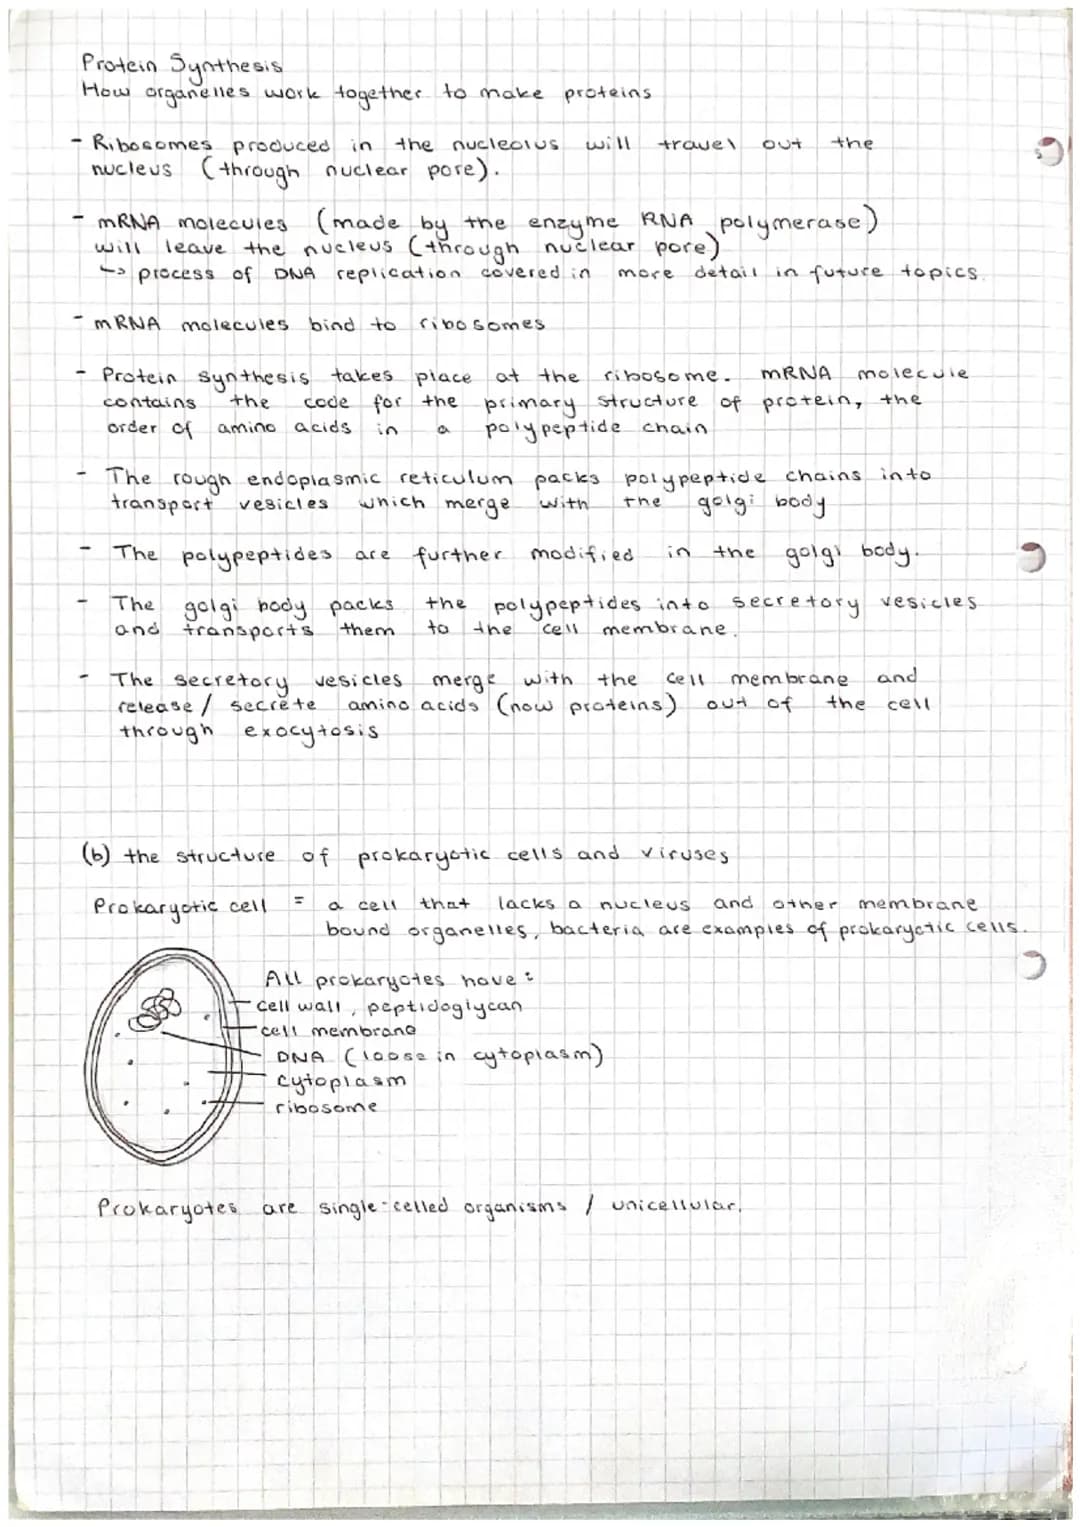 Protein Synthesis
How organelles work together to make proteins
- Ribosomes produced in the nucleolus will travel out the
nucleus (through nuclear pore).
- mRNA molecules (made by the enzyme RNA polymerase)
will leave the nucleus (through nuclear pore)
↳ process of DNA replication covered in more detail in future topics.
- mRNA molecules bind to ribosomes
- Protein synthesis takes place at the ribosome. mRNA molecule
contains the code for the primary structure of protein, the
order of amino acids in a polypeptide chain
- The rough endoplasmic reticulum packs polypeptide chains into
transport vesicles which merge with the golgi body
- The polypeptides are further modified in the golgi body.
- The golgi body packs the polypeptides into secretory vesicles
and transports them to the cell membrane.
- The secretory vesicles merge with the cell membrane and
release / secrete amino acids (now proteins) out of the cell
through exocytosis
(b) the structure of prokaryotic cells and viruses
Prokaryotic cell = a cell that lacks a nucleus and other membrane
bound organelles, bacteria are examples of prokaryotic cells.
All prokaryotes have :
cell wall, peptidoglycan
cell membrane
DNA (loose in cytoplasm)
cytoplasm
ribosome
Prokaryotes are single-celled organisms / unicellular.